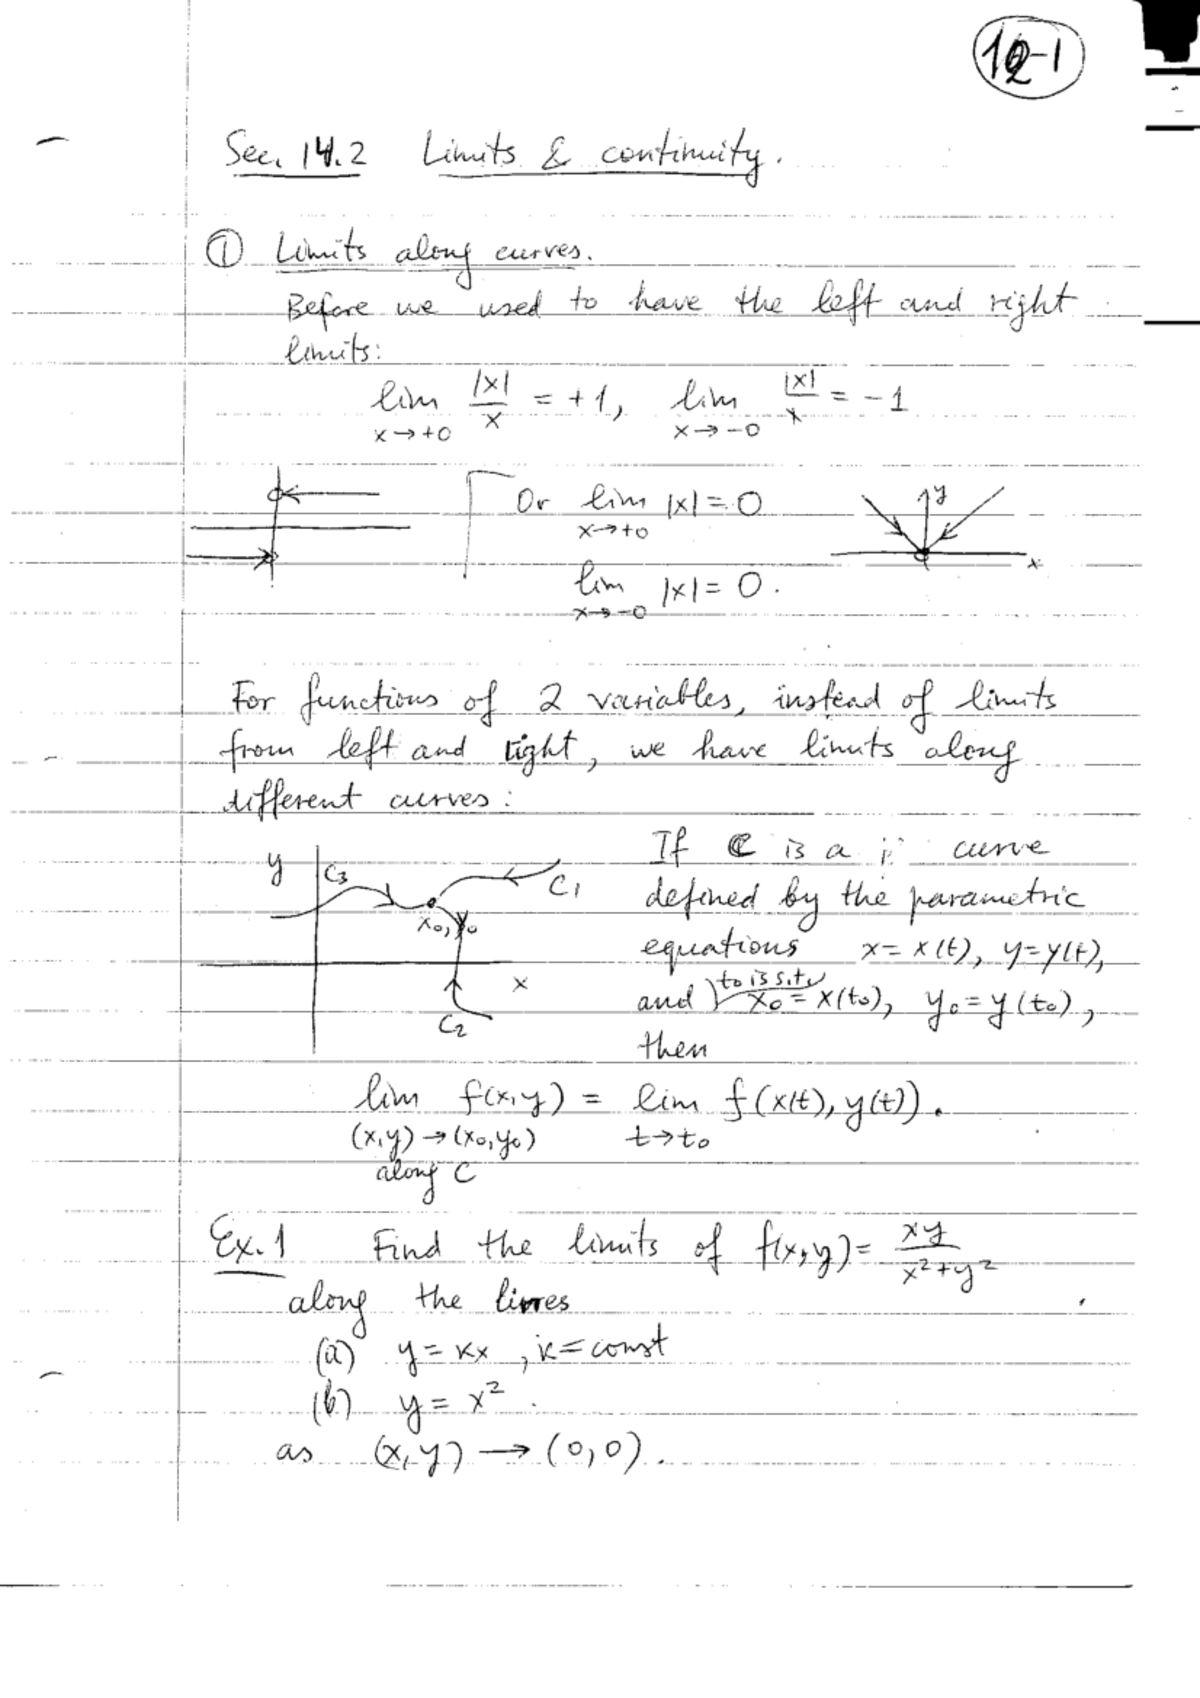 12-1
Sec. 14.2 Limits & continuity.
① Limits along curves.
Before we used to have the left and right
limits:
lim |x|/x = +1, lim |x|/x = -1
x→+0 x→-0
Or lim |x| = 0
x→+0
y
x
lim |x| = 0.
x→-0
For functions of 2 variables, instead of limits
from left and right, we have limits along
different curves:
y
C3
C1
x0, y0
x
C2
If C is a curve
defined by the parametric
equations x = x(t), y = y(t),
and t0 is s.t. x0 = x(t0), y0 = y(t0),
then
lim f(x,y) = lim f(x(t), y(t)).
(x,y) → (x0,y0) t→t0
along C
Ex. 1 Find the limits of f(x,y) = xy/x²+y²
along the lines
(a) y = kx, k = const
(b) y = x².
as (x,y) → (0,0).